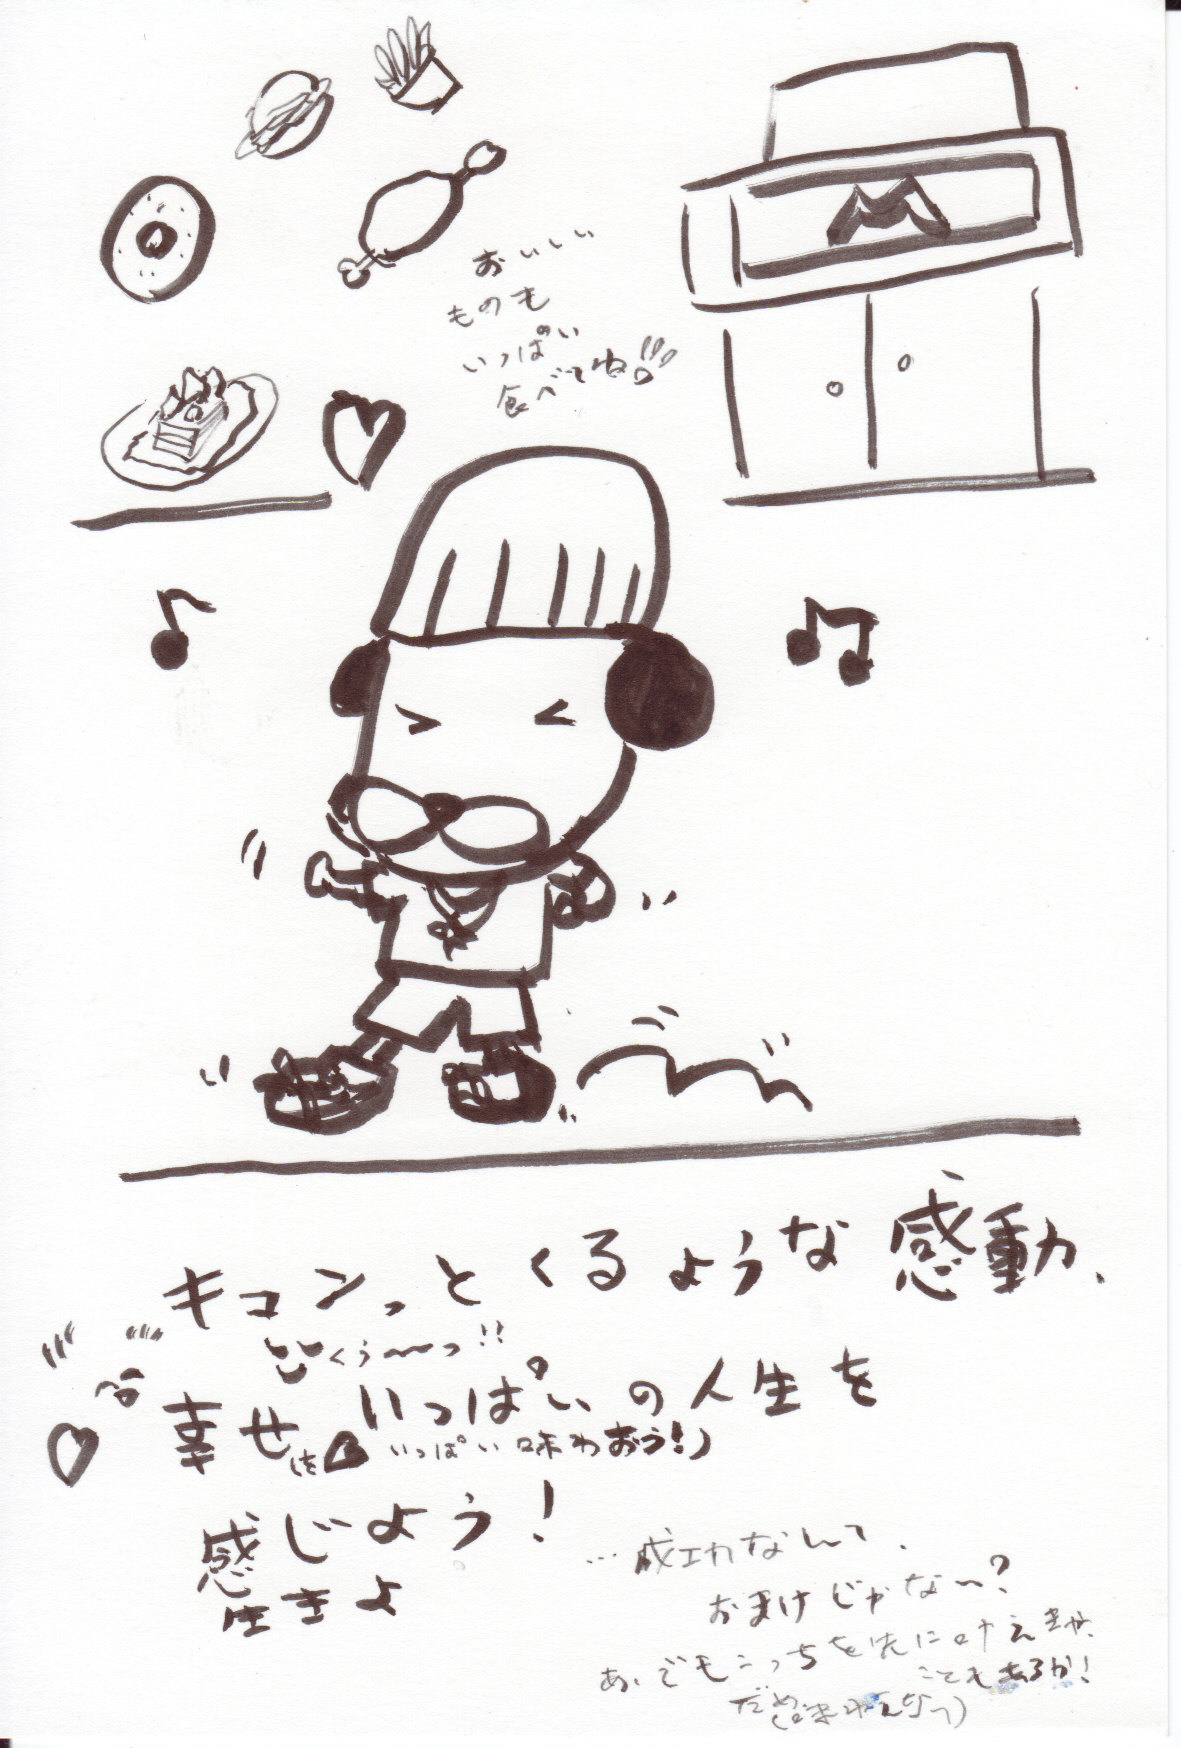 M
おいしい
ものも
いっぱい
食べてね!!!
キュンっとくるような感動、
くぅ〜っ!!
幸せいっぱいの人生を
(を いっぱい味わおう!)
感じよう!
生きよ
…成功なんて、
おまけじゃな〜?
あ、でもこっちを先に叶えきゃ
こともあるか!